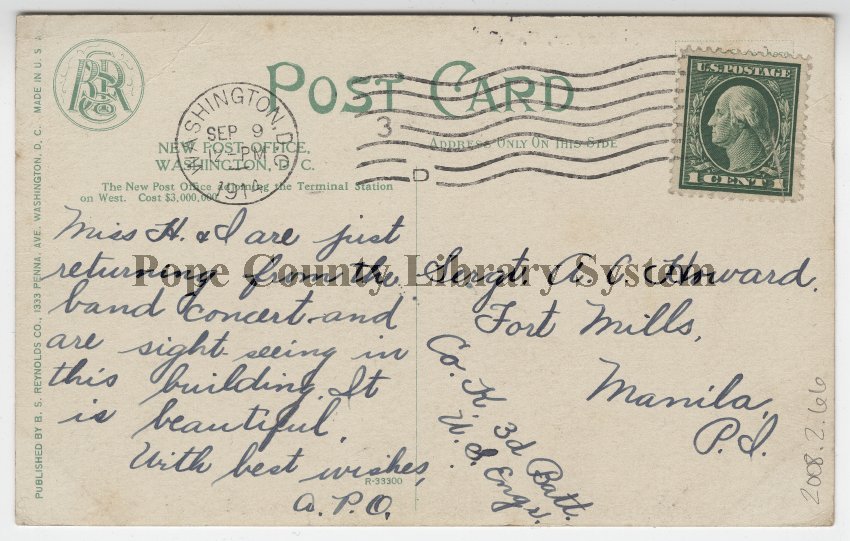 POST CARD
WASHINGTON, D.C.
SEP 9
12-PM
1914
3
D
U.S. POSTAGE
1 CENT 1
NEW POST OFFICE,
WASHINGTON, D. C.
ADDRESS ONLY ON THIS SIDE
The New Post Office adjoining the Terminal Station
on West. Cost $3,000,000.
Miss H. & I are just
returning from the
band concert and
are sight-seeing in
this building. It
is beautiful.
With best wishes,
A.P.O.
R-33300
Sergt. A. C. Howard.
Fort Mills,
Manila,
P.I.
Co. K. 3d Batt.
U.S. Engs.
Pope County Library System
PUBLISHED BY B. S. REYNOLDS CO., 1333 PENNA. AVE. WASHINGTON, D. C. MADE IN U. S. A
2008.2.66